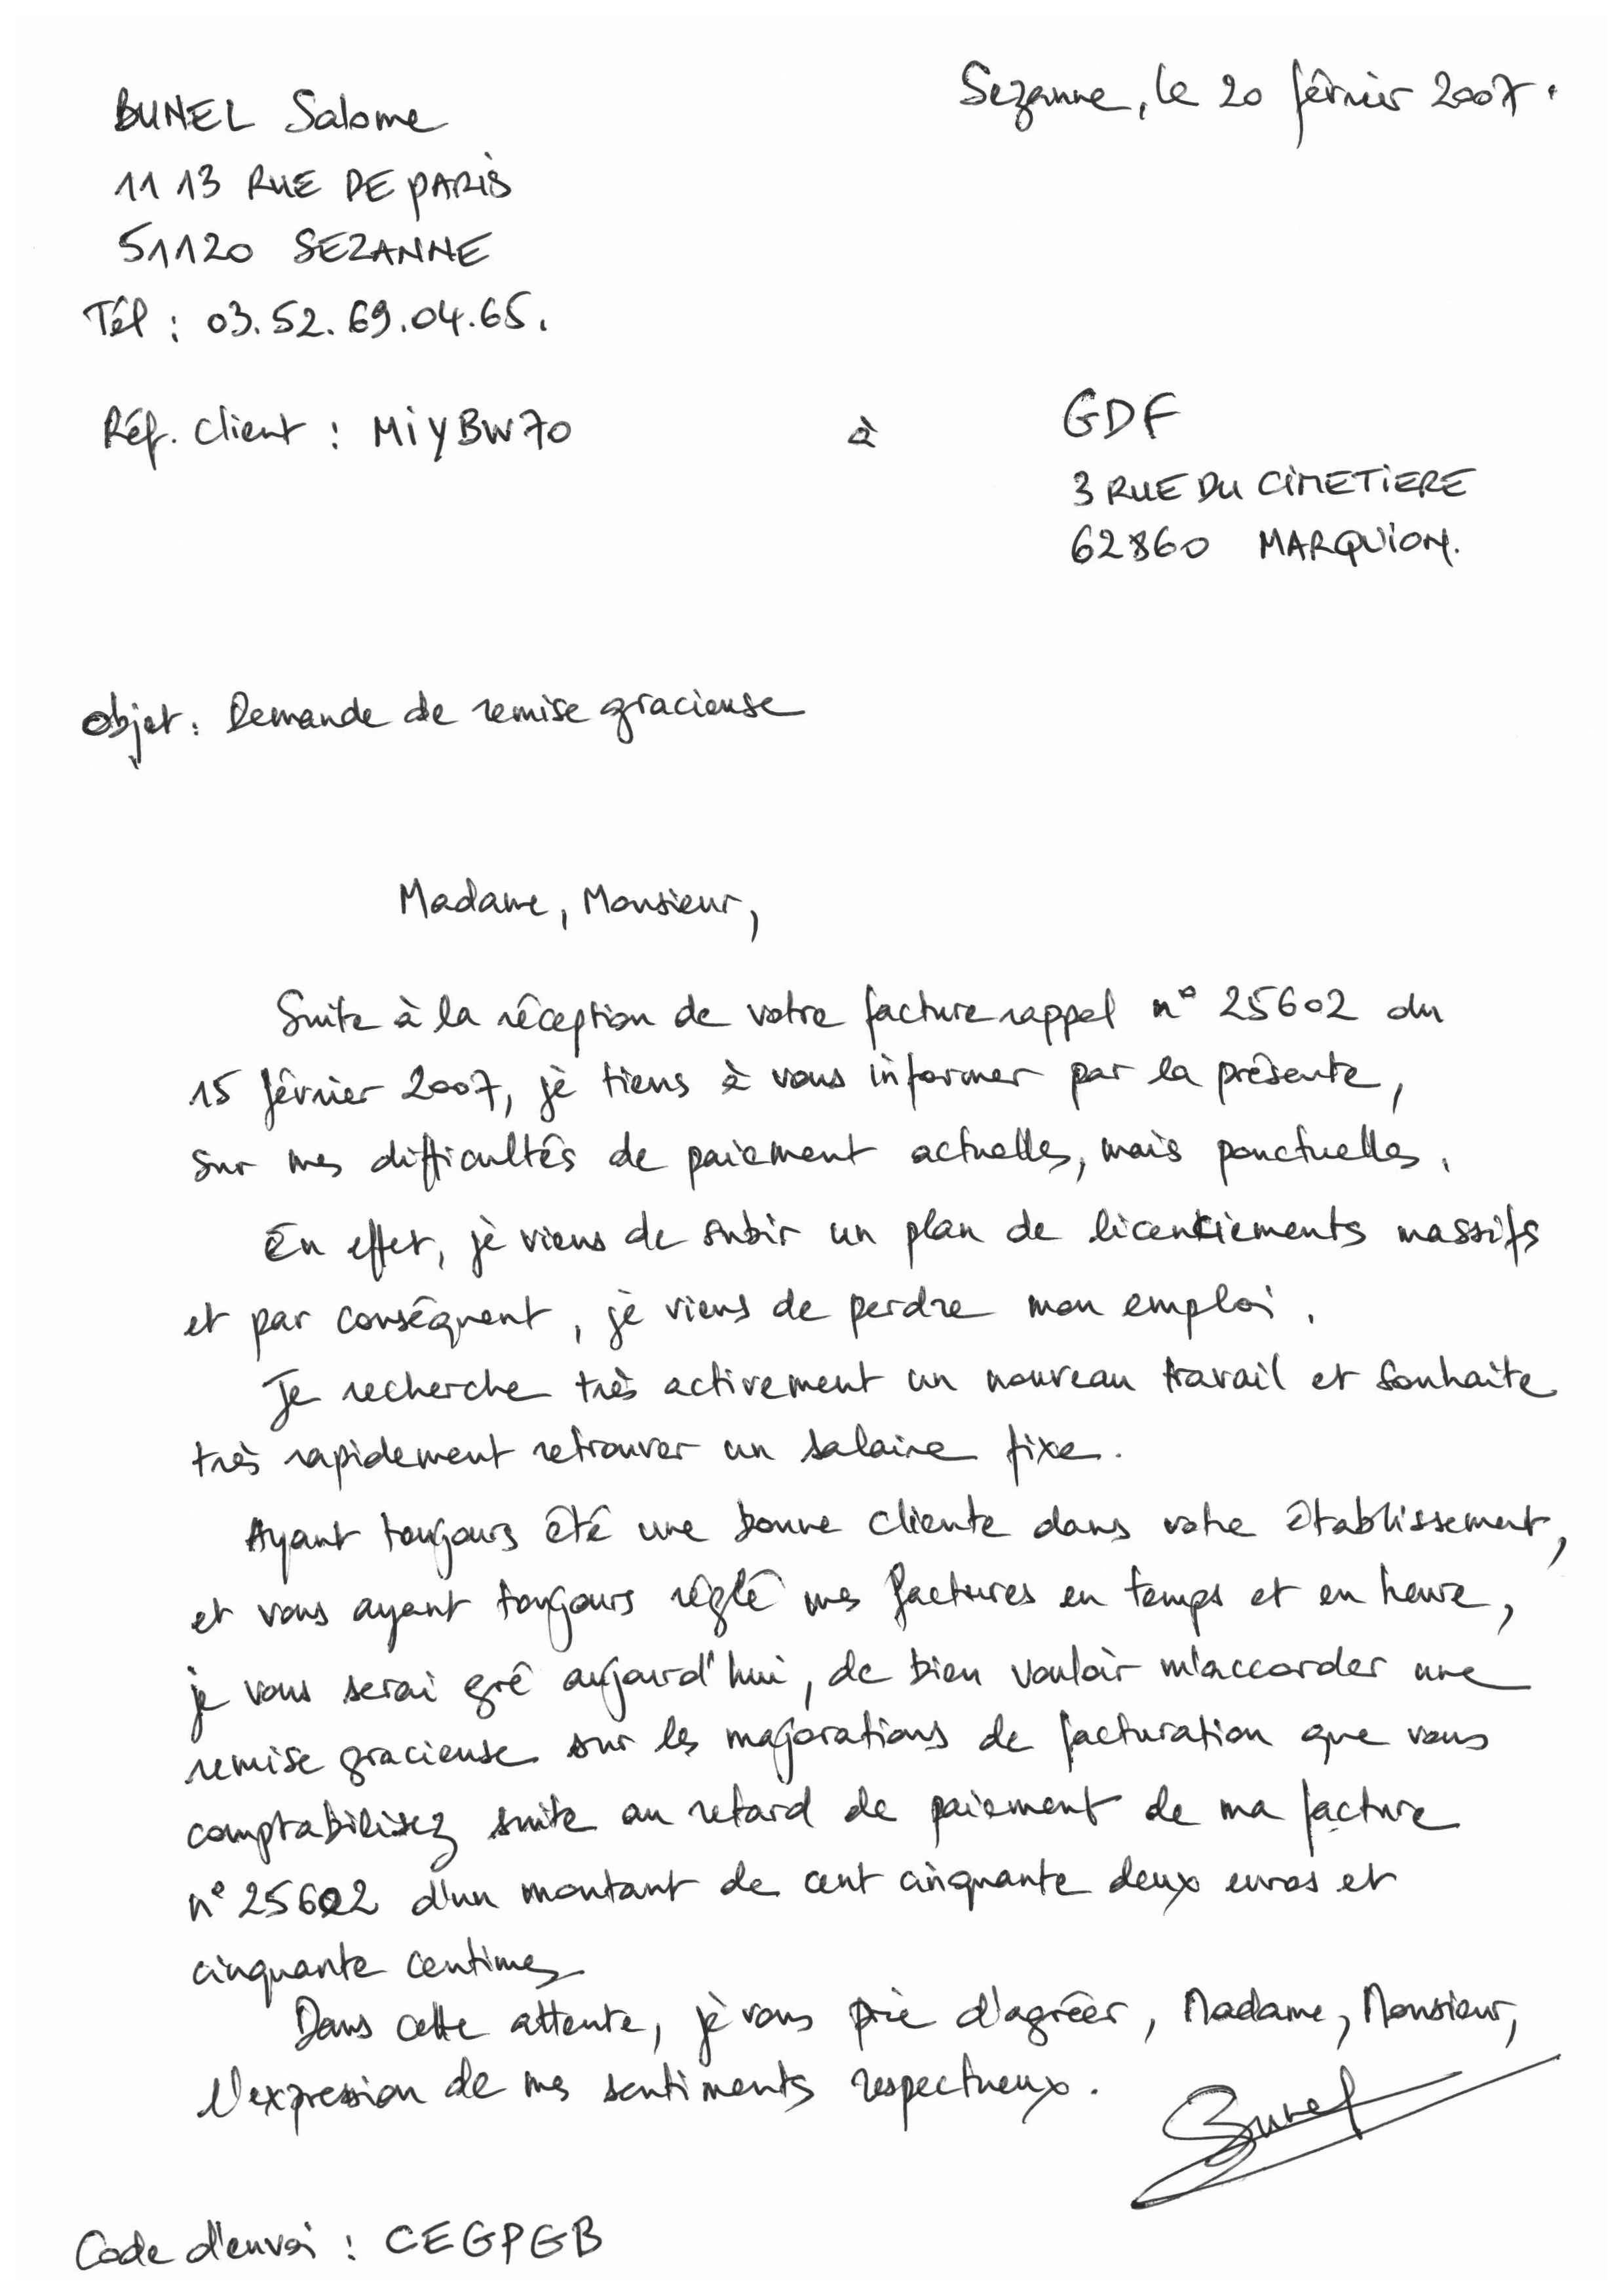 Sezanne, le 20 février 2007.
BUNEL Salome
11 13 RUE DE PARIS
51120 SEZANNE
Tél : 03.52.69.04.65.
Réf. Client : MiYBW70
à
GDF
3 RUE DU CIMETIERE
62860 MARQUION.
Objet : Demande de remise gracieuse
Madame, Monsieur,
Suite à la réception de votre facture rappel n° 25602 du
15 février 2007, je tiens à vous informer par la présente,
sur mes difficultés de paiement actuelles, mais ponctuelles.
En effet, je viens de subir un plan de licenciements massifs
et par conséquent, je viens de perdre mon emploi.
Je recherche très activement un nouveau travail et souhaite
très rapidement retrouver un salaire fixe.
Ayant toujours été une bonne cliente dans votre établissement,
et vous ayant toujours réglé mes factures en temps et en heure,
je vous serai gré aujourd'hui, de bien vouloir m'accorder une
remise gracieuse sur les majorations de facturation que vous
comptabilisez suite au retard de paiement de ma facture
n° 25602 d'un montant de cent cinquante deux euros et
cinquante centimes
Dans cette attente, je vous prie d'agréer, Madame, Monsieur,
l'expression de mes sentiments respectueux.
Bunel
Code d'envoi : CEGPGB